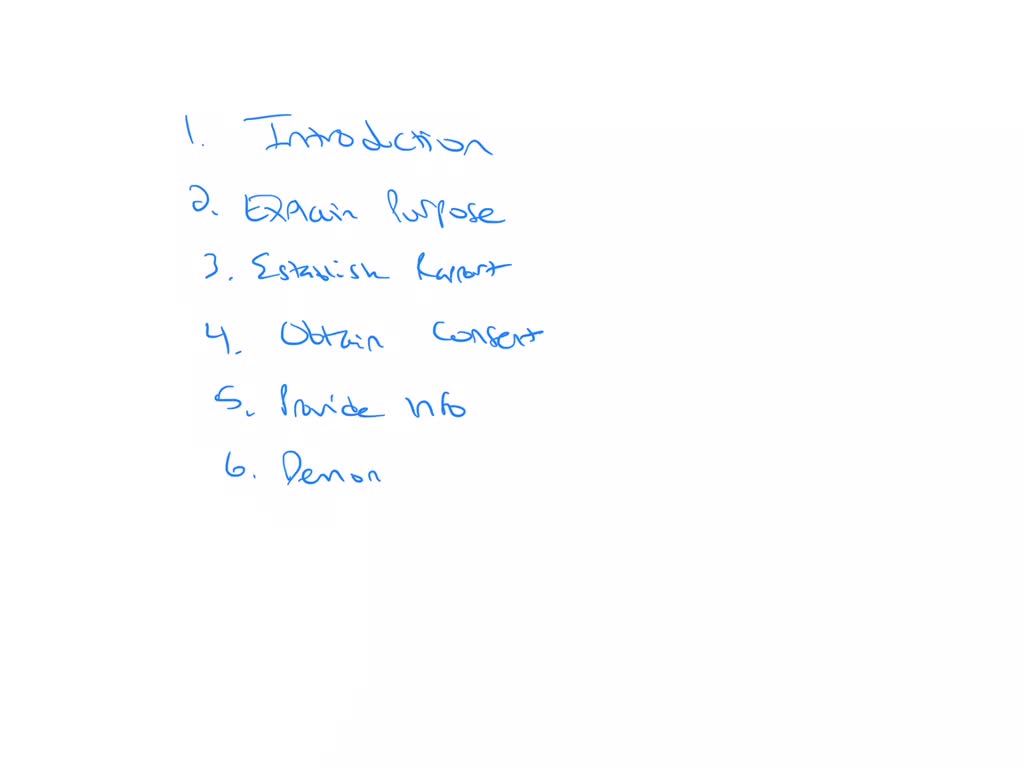 1. Introduction
2. Explain Purpose
3. Establish Rapport
4. Obtain Consent
5. Provide info
6. Demon